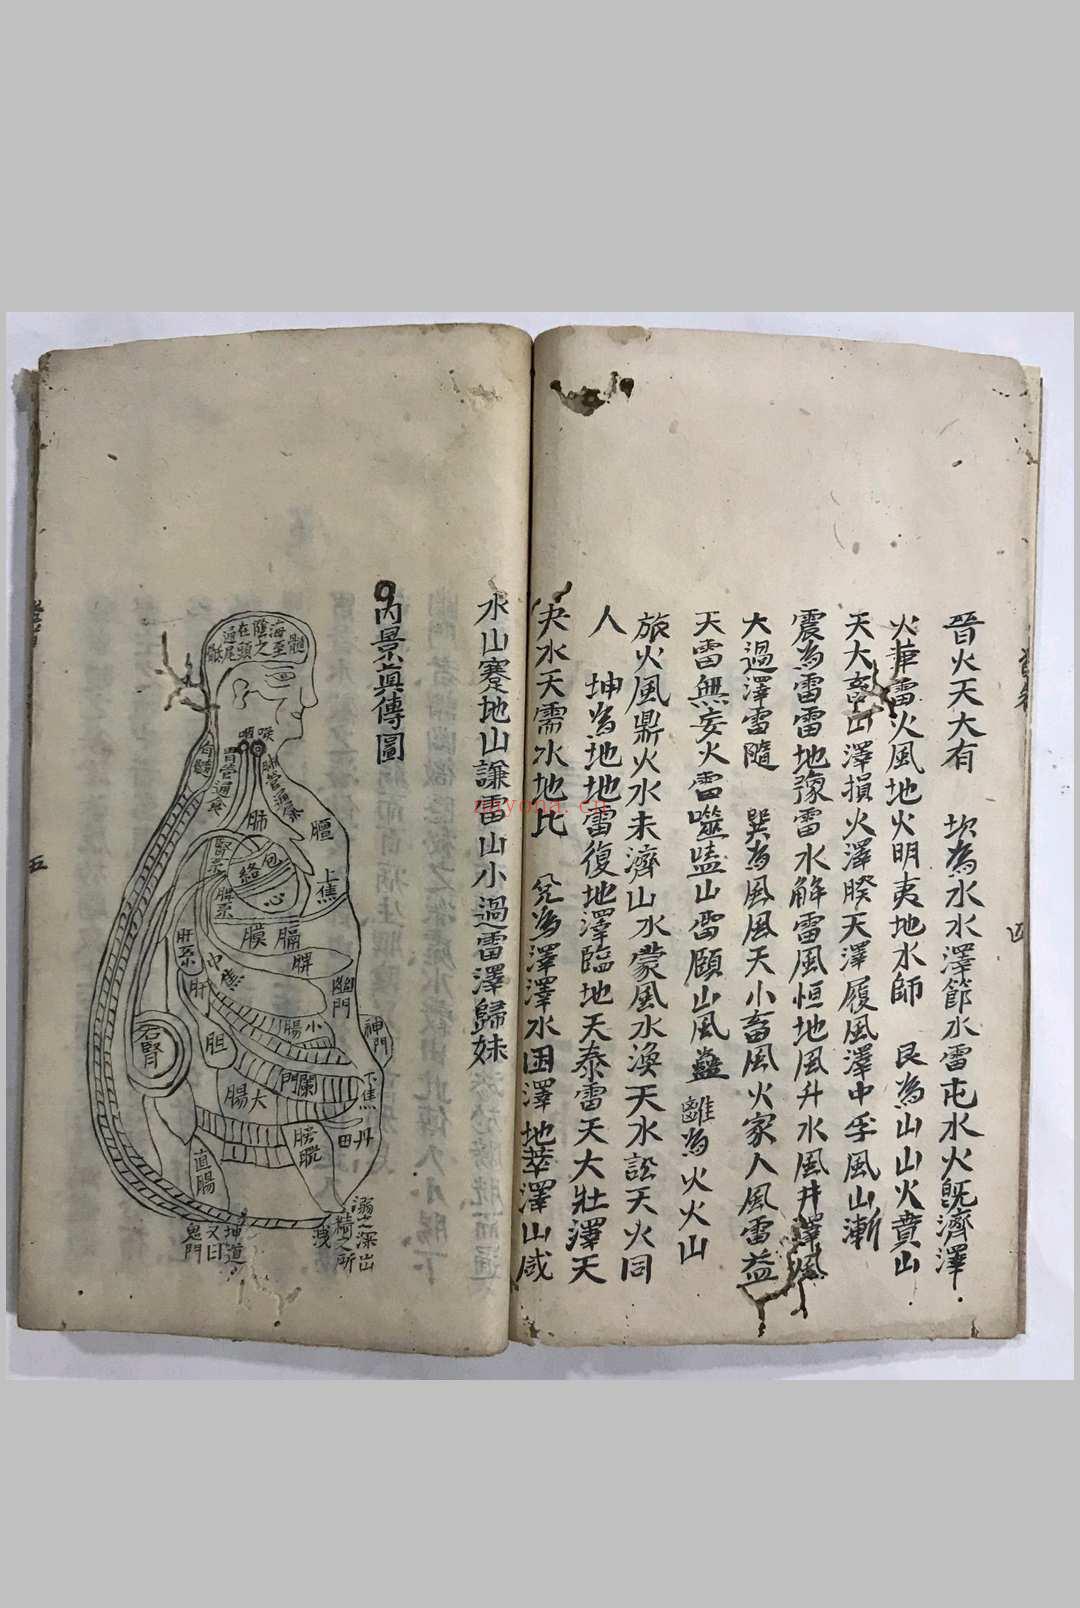 晉火天大有　坎為水水澤節水雷屯水火旣濟澤
火革雷火風地火明夷地水師　艮為山山火賁山
天大畜山澤損火澤睽天澤履風澤中孚風山漸
震為雷雷地豫雷水解雷風恒地風升水風井澤風
大過澤雷隨　巽為風風天小畜風火家人風雷益
天雷無妄火雷噬嗑山雷頤山風蠱　離為火火山
旅火風鼎火水未濟山水蒙風水渙天水訟天火同
人　坤為地地雷復地澤臨地天泰雷天大壯澤天
夬水天需水地比　兌為澤澤水困澤地萃澤山咸
水山蹇地山謙雷山小過雷澤歸妹
四
內景眞傳圖
髓
海至
陰之
在頭
過尾
喉
咽
胃管通
肺
膻
上焦
腎系
脾系
包
絡
心
膈
膜
脾
中焦
肝
幽門
小腸
神門
胆
右腎
闌門
下焦
大腸
丹田
膀胱
直腸
溺之深出
精之所
洩
坤道
又曰
鬼門
五